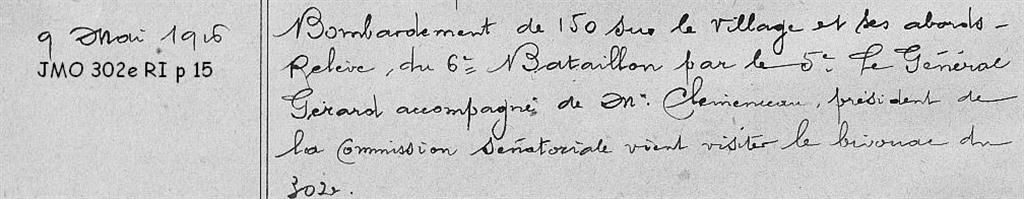 9 Mai 1916
JMO 302e RI p 15
Bombardement de 150 sur le village et ses abords -
Relève, du 6e Bataillon par le 5e. Le Général
Gérard accompagné de Mr. Clemenceau, président de
la Commission Sénatoriale vient visiter le bivouac du
302e.